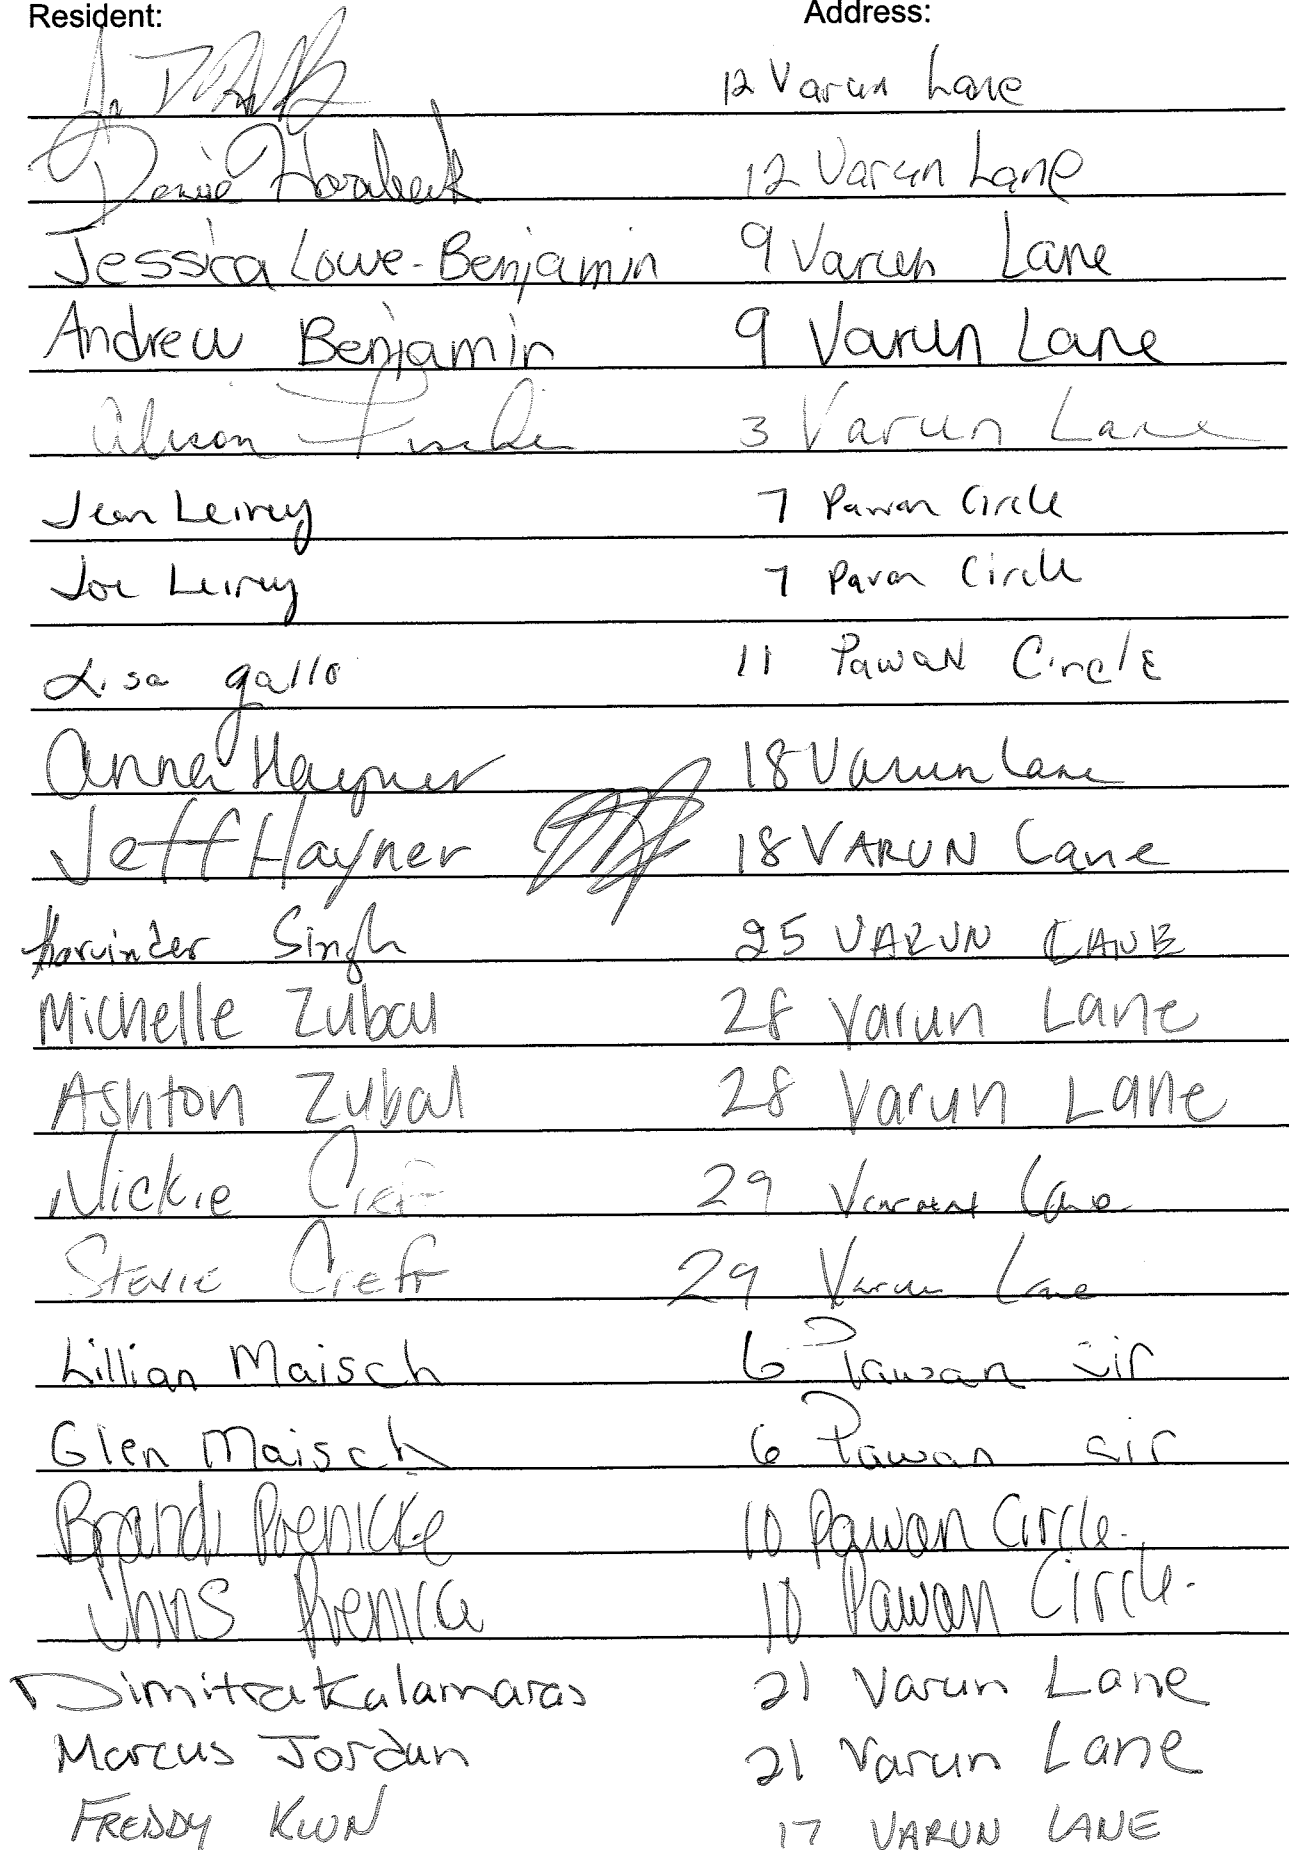 Resident: Address:
12 Varun Lane
Denise Hornbeck 12 Varun Lane
Jessica Lowe-Benjamin 9 Varun Lane
Andrew Benjamin 9 Varun Lane
Alison 3 Varun Lane
Jean Leirey 7 Pawan Circle
Joe Leirey 7 Pavan Circle
Lisa gallo 11 Pawan Circle
Anna Hayner 18 Varun Lane
Jeff Hayner 18 VARUN Lane
Harvinder Singh 25 VARUN LANE
Michelle Zubal 28 Varun Lane
Ashton Zubal 28 Varun Lane
Nickie Creft 29 Varun Lane
Stevie Creft 29 Varun Lane
Lillian Maisch 6 Pawan Cir
Glen Maisch 6 Pawan Cir
Brandi Poenicke 10 Pawan Circle.
Chris 10 Pawan Circle.
Dimitra Kalamaras 21 Varun Lane
Marcus Jordan 21 Varun Lane
FREDDY KWN 17 VARUN LANE